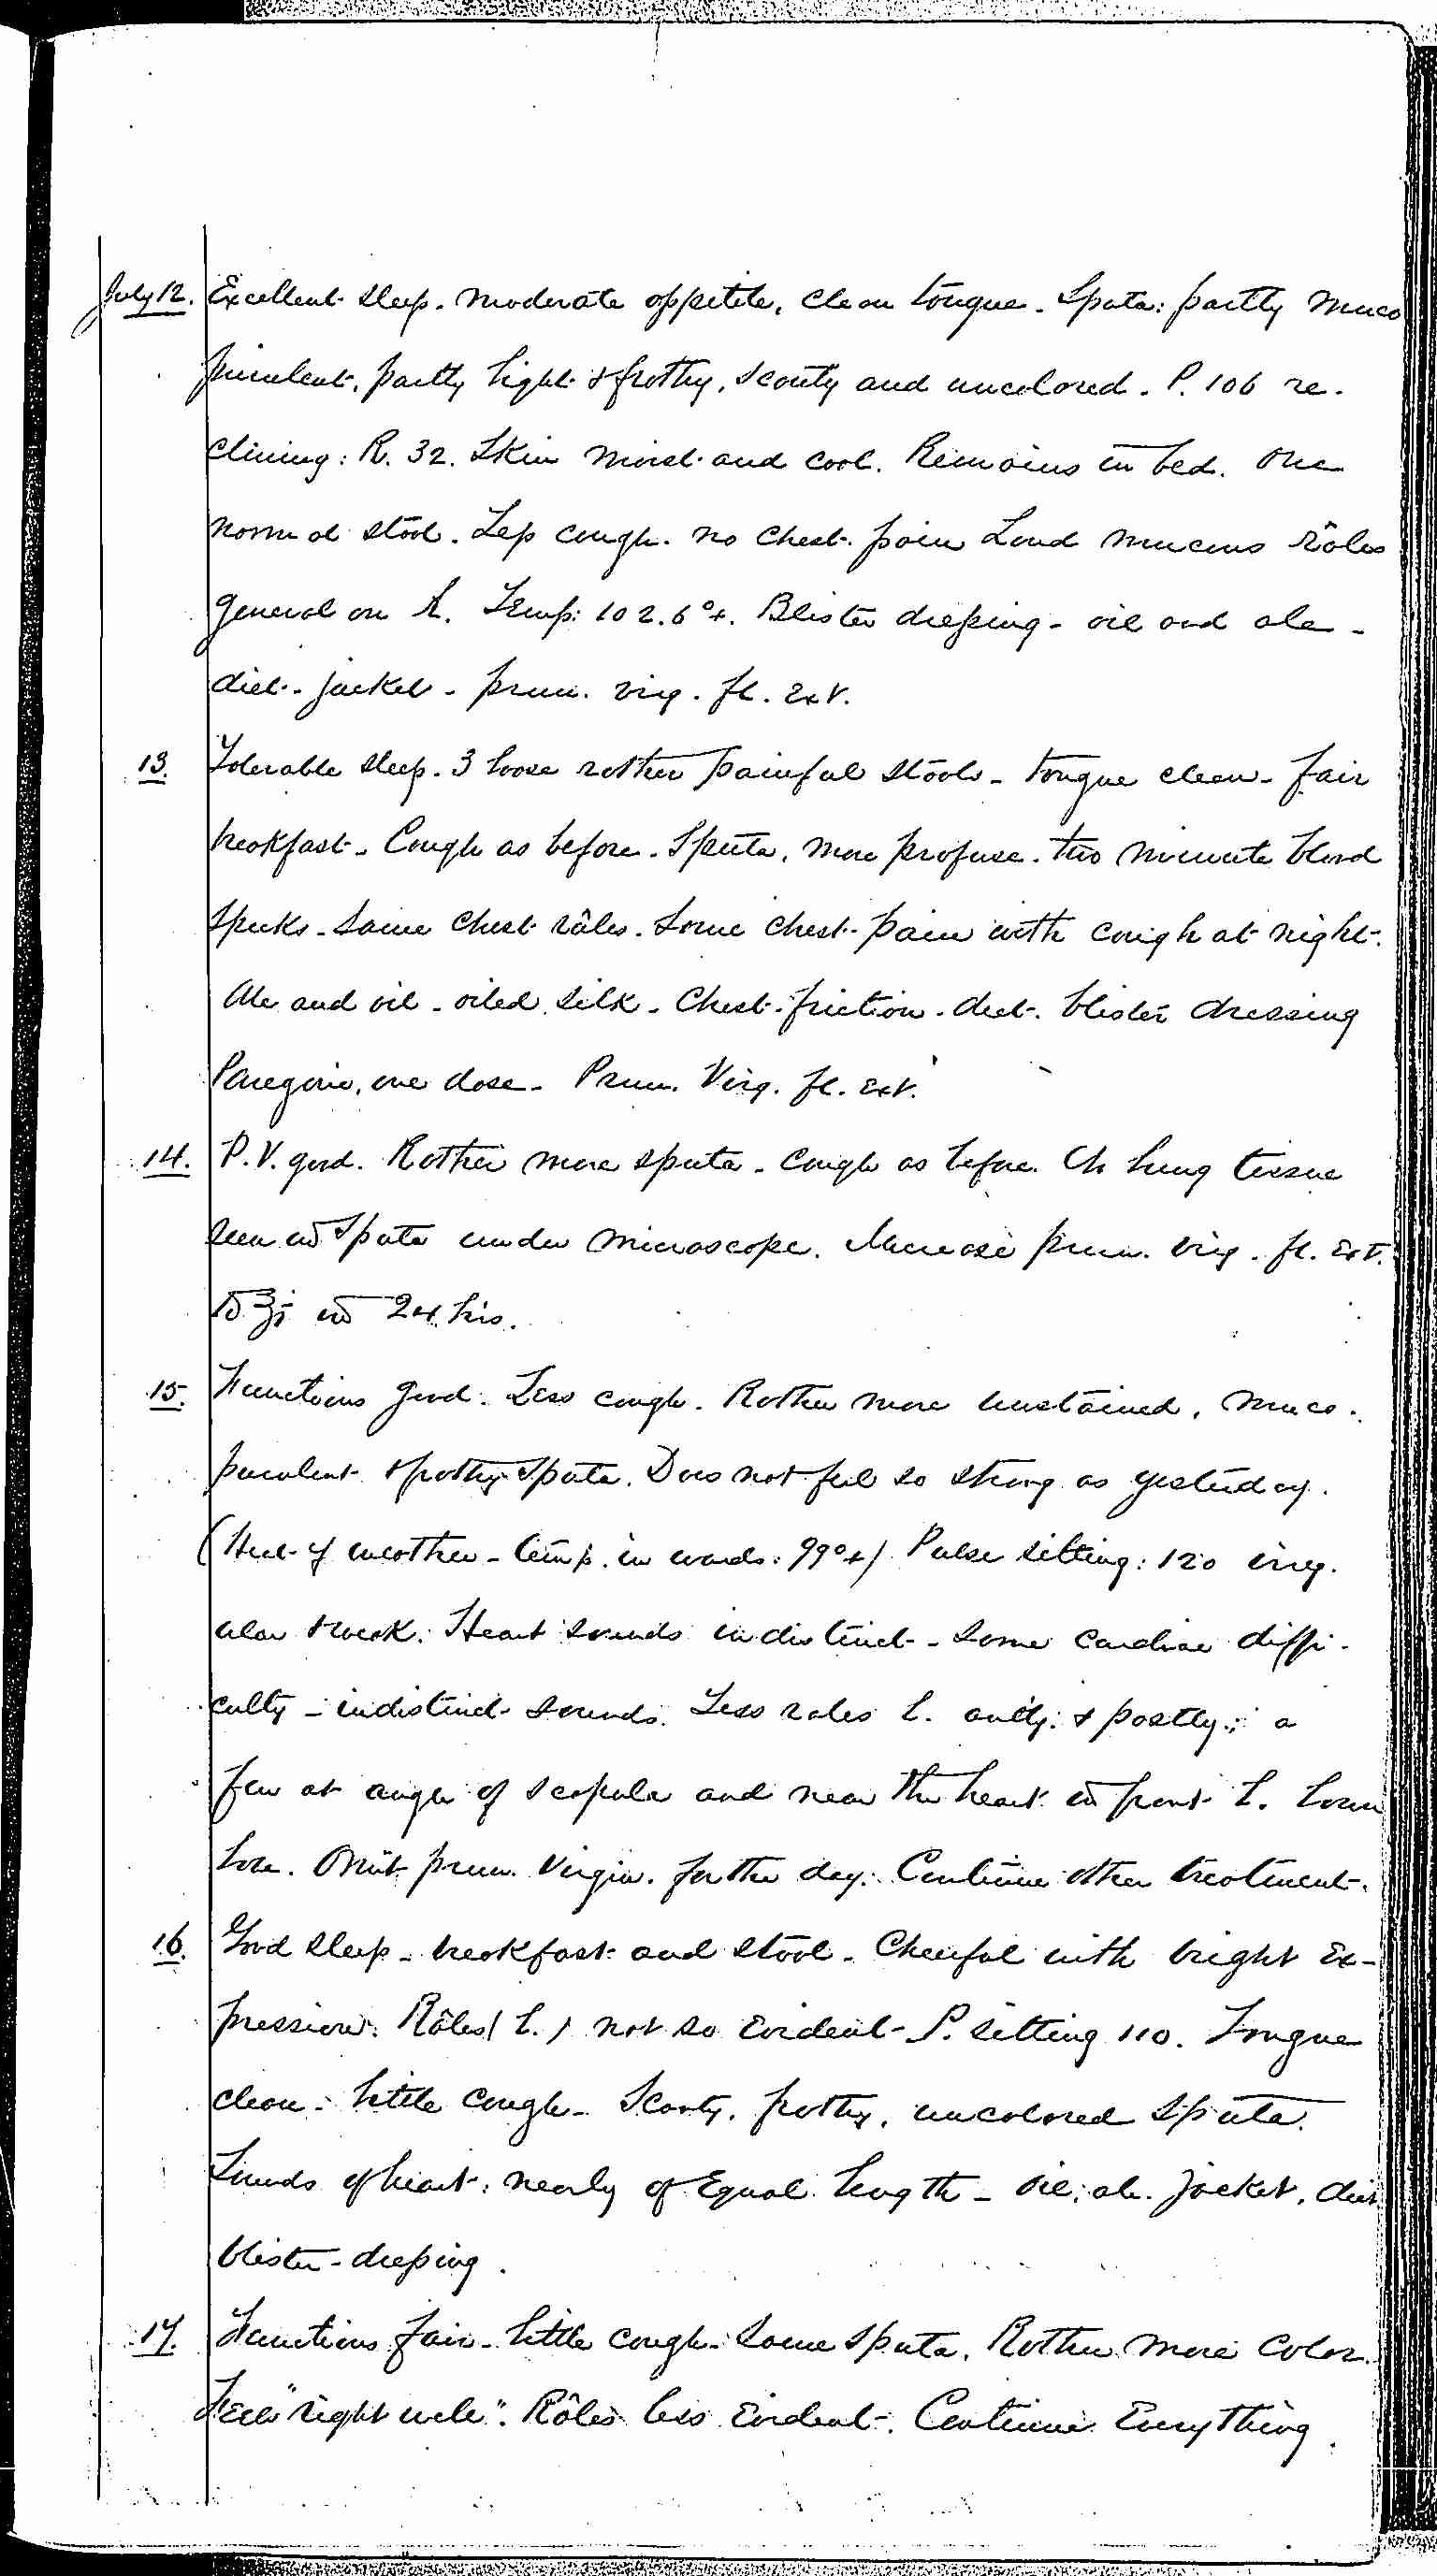 July 12. Excellent sleep. Moderate appetite, clean tongue. Sputa: partly muco
purulent, partly light & frothy, scanty and uncolored. P. 106 re-
clining: R. 32. Skin moist and cool. Remains in bed. One
normal stool. Less cough. No chest pain Loud mucous râles
general on L. Temp: 102.6°+. Blister dressing - oil and ale -
diet - jacket - prun. virg. fl. ext.
13. Tolerable sleep. 3 loose rather painful stools - tongue clean - fair
breakfast - Cough as before. Sputa, more profuse. two minute blood
specks - Same chest râles. Some chest pain with cough at night.
Ale and oil - oiled silk - Chest friction - diet - blister dressing
Paregoric, one dose - Prun. Virg. fl. ext.
14. P.V. good. Rather more sputa - Cough as before. lung tissue
seen in Sputa under microscope. Increase prun. virg. fl. ext.
to ℥j in 24 hrs.
15. Functions good. Less cough. Rather more unstained, muco-
purulent & frothy sputa. Does not feel so strong as yesterday.
(Heat of weather - temp. in wards: 99°+) Pulse sitting: 120 irreg-
ular & weak. Heart sounds indistinct - some cardiac diffi-
culty - indistinct sounds. Less rales L. antly. & postly.; a
few at angle of scapula and near the heart in front L. lower
lobe. Omit prun. Virgin. for the day. Continue other treatment.
16. Good sleep - breakfast and stool - Cheerful with bright ex-
pression. Râles (L.) not so evident - P. sitting 110. Tongue
clean - little cough - Scanty, frothy, uncolored sputa.
Sounds of heart: nearly of equal length - Oil, ale. jacket, diet
blister-dressing.
17. Functions fair - little cough - Some sputa. Rather more color.
Feels "right well". Râles less evident. Continue everything.